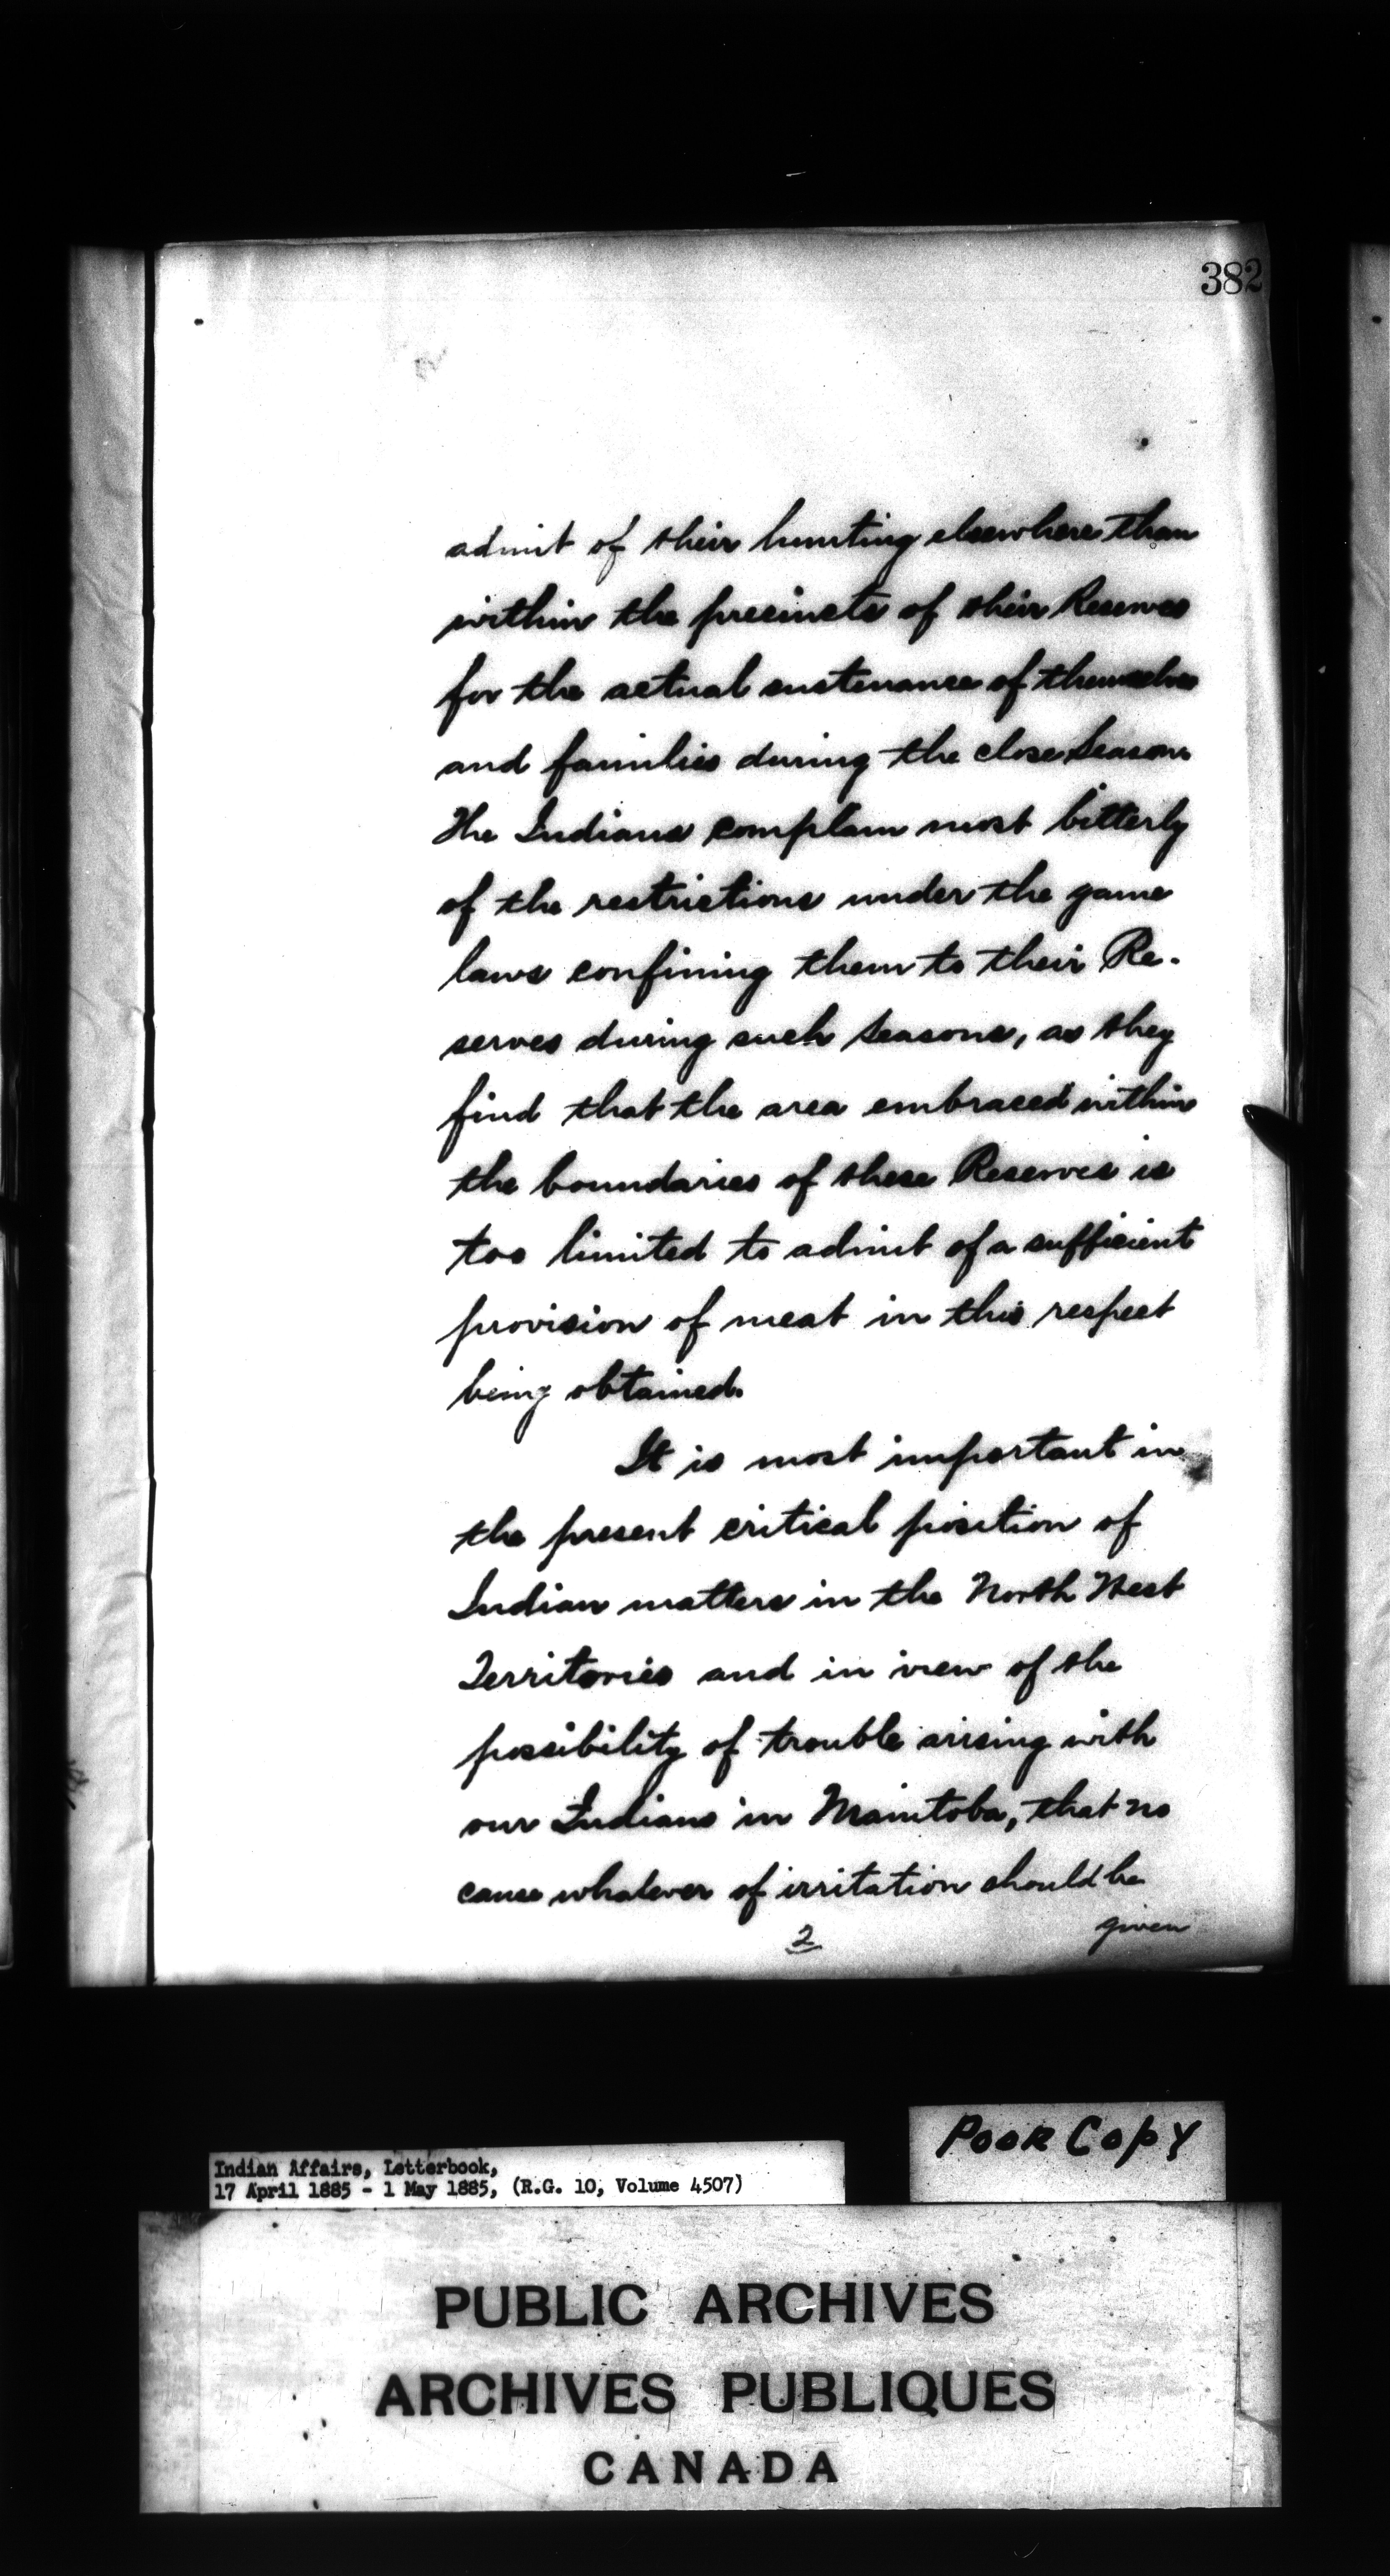 382
admit of their hunting elsewhere than
within the precincts of their Reserves
for the actual sustenance of themselves
and families during the close season.
The Indians complain most bitterly
of the restrictions under the game
laws confining them to their Re-
serves during such seasons, as they
find that the area embraced within
the boundaries of these Reserves is
too limited to admit of a sufficient
provision of meat in this respect
being obtained.
It is most important in
the present critical position of
Indian matters in the North West
Territories and in view of the
possibility of trouble arising with
our Indians in Manitoba, that no
cause whatever of irritation should be
2 given
Poor Copy
Indian Affairs, Letterbook,
17 April 1885 - 1 May 1885, (R.G. 10, Volume 4507)
PUBLIC ARCHIVES
ARCHIVES PUBLIQUES
CANADA